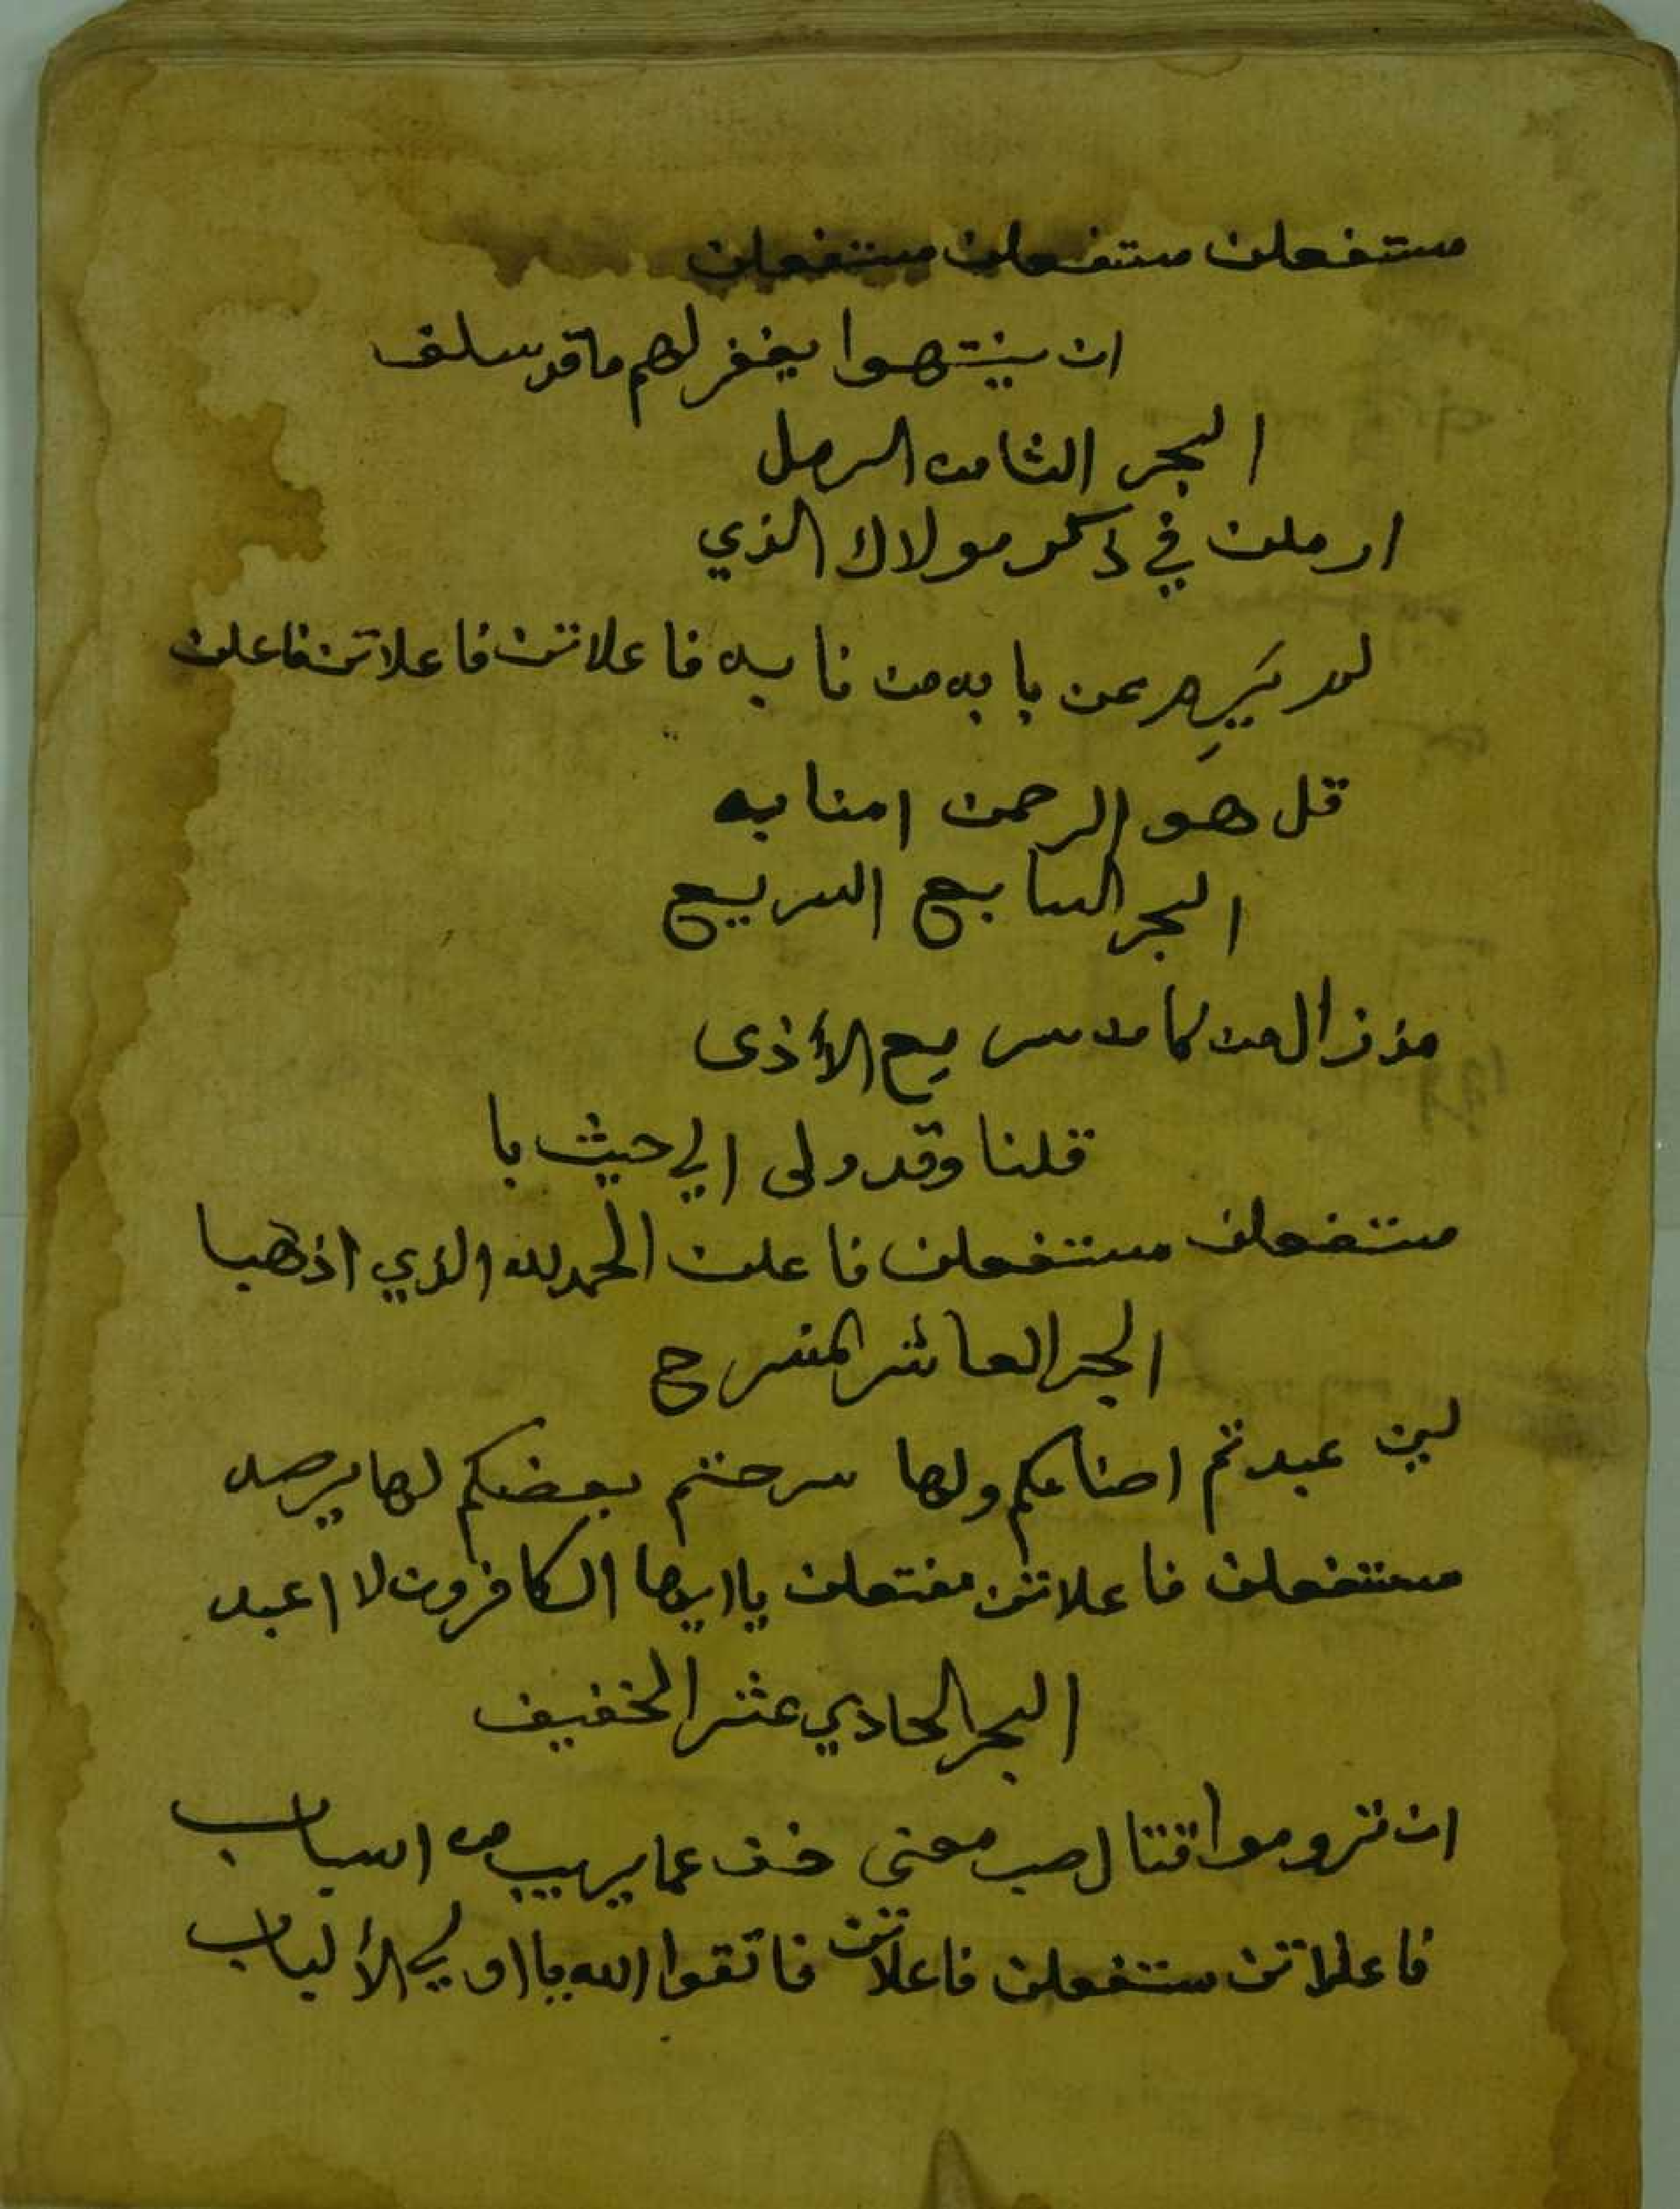 مستفعلن مستفعلن مستفعلن
ان ينتهوا يغفر لهم ما قد سلف
البحر الثامن الرمل
ارملن في ذكر مولاك الذي
لم يرم عن بابه من نابه فاعلاتن فاعلاتن فاعلن
قل هو الرحمن امنا به
البحر السابع السريع
مذ زال من كان سريع الأذى
قلنا وقد ولى الي حيث با
مستفعلن مستفعلن فاعلن الحمد لله الذي اذهبا
البحر العاشر المنسرح
لين عبدتم اصنامكم ولها سرحتم بعضكم لها يرصد
مستفعلن فاعلاتن مفتعلن يا ايها الكافرون لا اعبد
البحر الحادي عشر الخفيف
ان تروموا قتال صب معنى خف عما يريب من اسباب
فاعلاتن ستفعلن فاعلاتن فاتقوا الله يا اولي الألباب